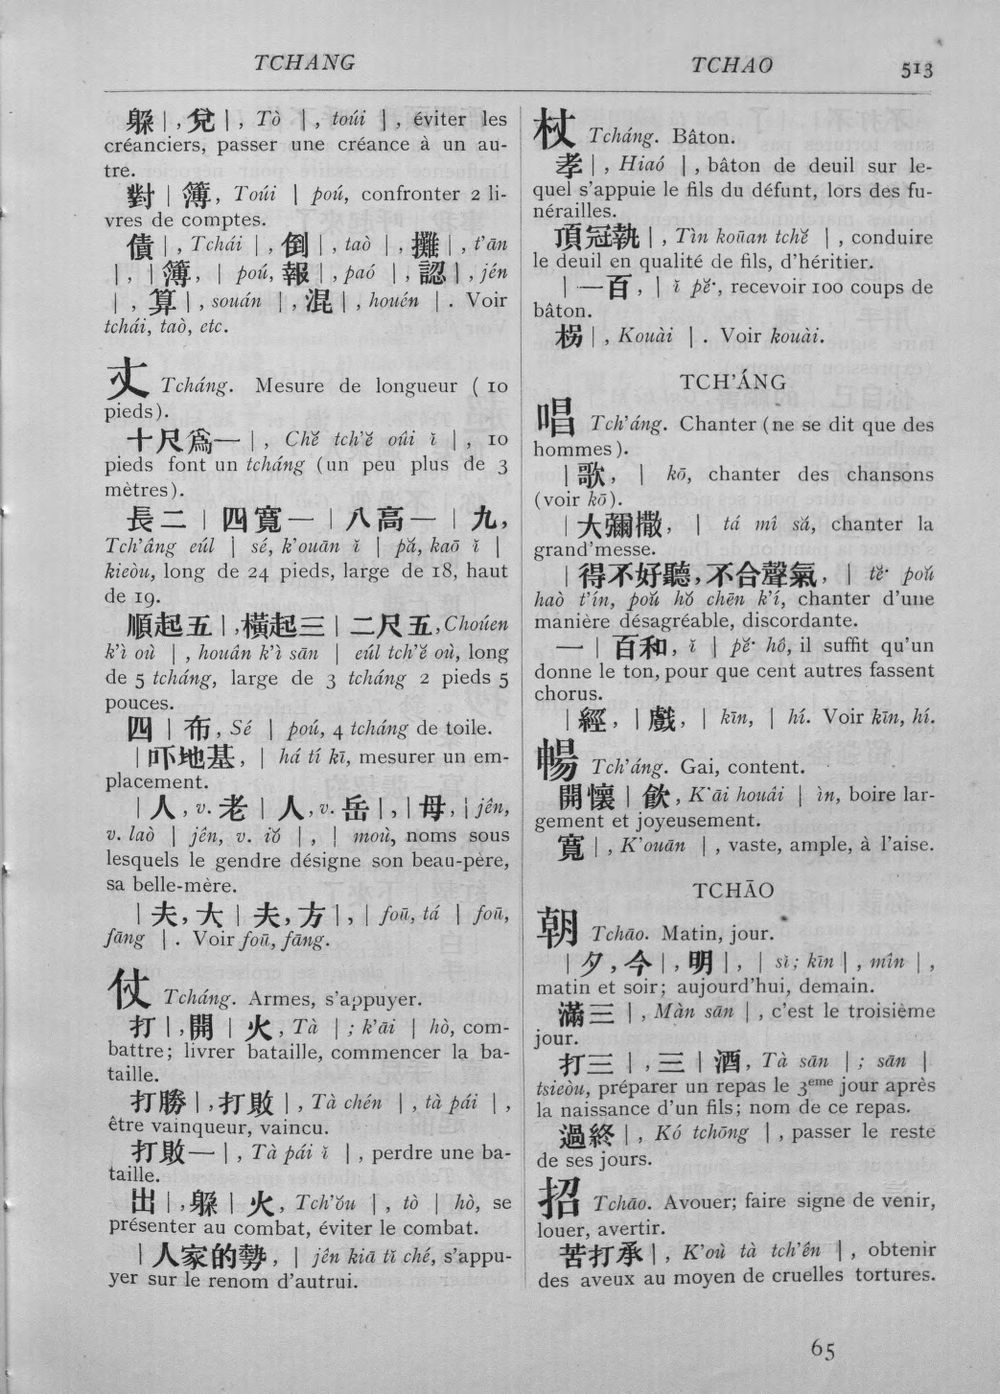 TCHANG
TCHAO
513
躲 | , 兌 | , Tò | , toúi | , éviter les
créanciers, passer une créance à un au-
tre.
對 | 簿, Toúi | poú, confronter 2 li-
vres de comptes.
債 | , Tchái | , 倒 | , taò | , 攤 | , t’ān
| , | 簿, | poú, 報 | , paó | , 認 | , jén
| , 算 | , souán | , 混 | , houén | . Voir
tchái, taò, etc.
丈 Tcháng. Mesure de longueur ( 10
pieds).
十尺爲一 | , Chě tch’ě oûi ǐ | , 10
pieds font un tcháng (un peu plus de 3
mètres).
長二 | 四寬一 | 八高一 | 九,
Tch’âng eúl | sé, k’ouān ǐ | pǎ, kaō ǐ |
kieòu, long de 24 pieds, large de 18, haut
de 19.
順起五 | , 橫起三 | 二尺五, Choúen
k’ì où | , houân k’ì sān | eúl tch’ě où, long
de 5 tcháng, large de 3 tcháng 2 pieds 5
pouces.
四 | 布, Sé | poú, 4 tcháng de toile.
| 吓地基, | há tí kī, mesurer un em-
placement.
| 人, v. 老 | 人, v. 岳 | , | 母, | jên,
v. laò | jên, v. iǒ | , | moù, noms sous
lesquels le gendre désigne son beau-père,
sa belle-mère.
| 夫, 大 | 夫, 方 | , | foū, tá | foū,
fāng | . Voir foū, fāng.
仗 Tcháng. Armes, s’appuyer.
打 | , 開 | 火, Tà | ; k’āi | hò, com-
battre; livrer bataille, commencer la ba-
taille.
打勝 | , 打敗 | , Tà chén | , tà pái | ,
être vainqueur, vaincu.
打敗一 | , Tà pái ǐ | , perdre une ba-
taille.
出 | , 躲 | 火, Tch’ǒu | , tò | hò, se
présenter au combat, éviter le combat.
| 人家的勢, | jên kiā tǐ ché, s’appu-
yer sur le renom d’autrui.
杖 Tcháng. Bâton.
孝 | , Hiaó | , bâton de deuil sur le-
quel s’appuie le fils du défunt, lors des fu-
nérailles.
頂冠執 | , Tìn koūan tchě | , conduire
le deuil en qualité de fils, d’héritier.
| 一百, | ǐ pě·, recevoir 100 coups de
bâton.
柺 | , Kouài | . Voir kouài.
TCH’ÁNG
唱 Tch’áng. Chanter (ne se dit que des
hommes).
| 歌, | kō, chanter des chansons
(voir kō).
| 大彌撒, | tá mî sǎ, chanter la
grand’messe.
| 得不好聽, 不合聲氣, | tě· poǔ
haò t’ín, poǔ hǒ chēn k’í, chanter d’une
manière désagréable, discordante.
一 | 百和, ǐ | pě· hô, il suffit qu’un
donne le ton, pour que cent autres fassent
chorus.
| 經, | 戲, | kīn, | hí. Voir kīn, hí.
暢 Tch’áng. Gai, content.
開懷 | 飲, K’āi houâi | ìn, boire lar-
gement et joyeusement.
寬 | , K’ouān | , vaste, ample, à l’aise.
TCHĀO
朝 Tchāo. Matin, jour.
| 夕, 今 | , 明 | , | sǐ; kīn | , mîn | ,
matin et soir; aujourd’hui, demain.
滿三 | , Màn sān | , c’est le troisième
jour.
打三 | , 三 | 酒, Tà sān | ; sān |
tsieòu, préparer un repas le 3eme jour après
la naissance d’un fils; nom de ce repas.
過終 | , Kó tchōng | , passer le reste
de ses jours.
招 Tchāo. Avouer; faire signe de venir,
louer, avertir.
苦打承 | , K’où tà tch’ên | , obtenir
des aveux au moyen de cruelles tortures.
65